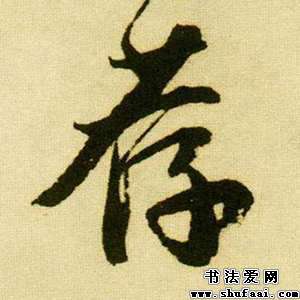 荐
书法爱网
www.shufaai.com